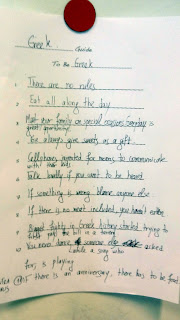 Greek Guide
To Be Greek
1 There are no rules
2 Eat all along the day
3 Meet your family on special reasons Sunday is
great opportunity
4 You always give sweets as a gift
5 Cellphones invented for moms to communicate
with their kids
6 Talk loudly if you want to be heard
7 If something is wrong blame anyone else
8 If there is no meat included, you haven't eaten
9 fights in Greek history started trying to
pay the bill in a tavern
10 You never dance if someone else asked
while a song
for, is playing
If there is an anniversary, there has to be food